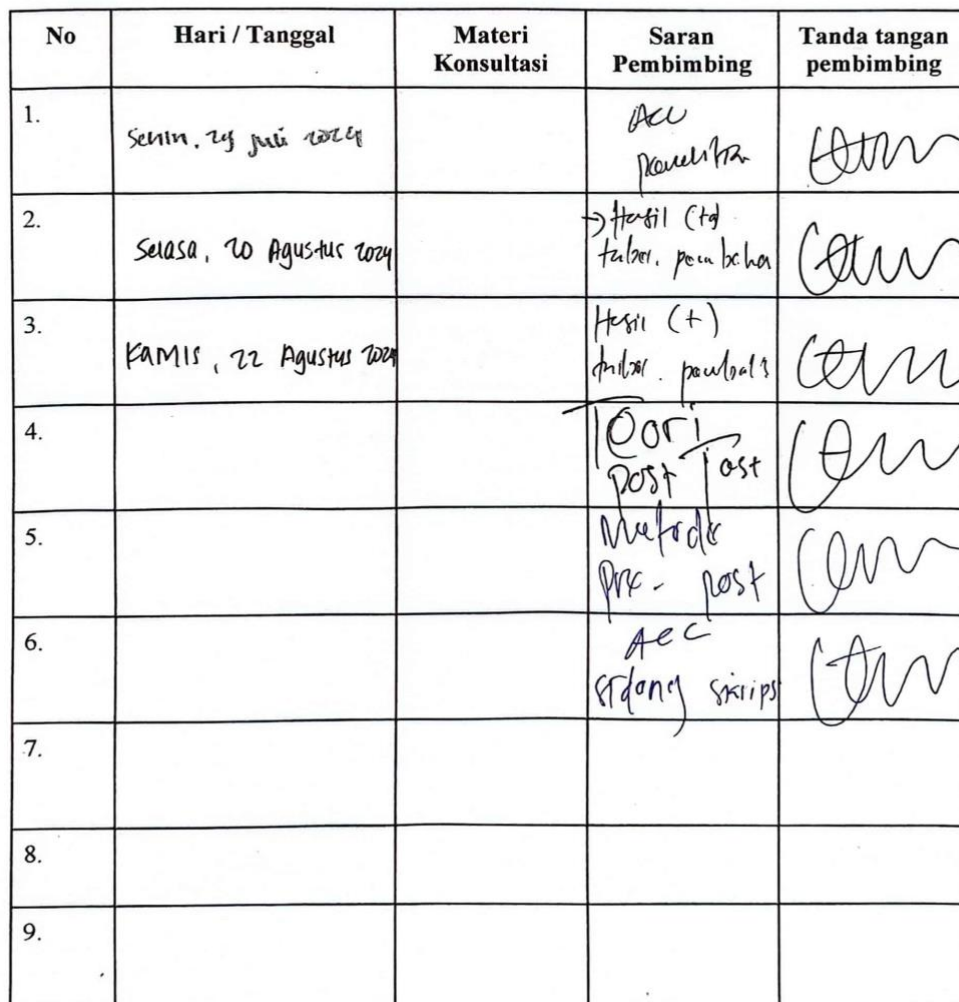 No Hari / Tanggal Materi Konsultasi Saran Pembimbing Tanda tangan pembimbing
1. Senin, 29 Juli 2024 Acc
penelitian
2. Selasa, 20 Agustus 2024 → Hasil (+)
tabel. pembahas
3. Kamis, 22 Agustus 2024 Hasil (+)
tabel.
4. Teori
post Test
5. Metode
Pre - post
6. Acc
sidang skripsi
7.
8.
9.